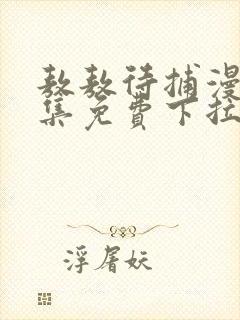 敖敖待捕漫
集免費下拉
浮屠妖